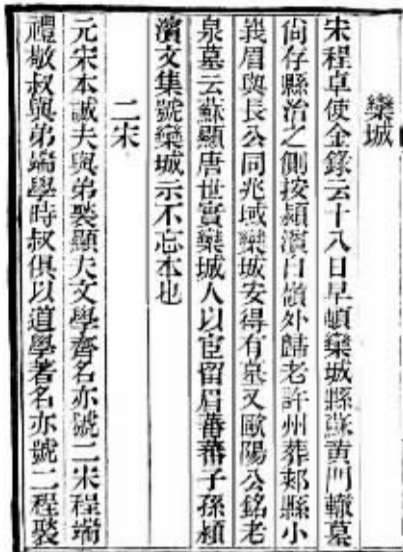 欒城
宋程卓使金錄云十八日早頓欒城縣蘇黃門轍墓
尙存縣治之側按潁濱自嶺外歸老許州葬郟縣小
峩眉與長公同兆域欒城安得有墓又歐陽公銘老
泉墓云蘇顯唐世實欒城人以宦留眉蕃蕃子孫潁
濱文集號欒城示不忘本也
二宋
元宋本誠夫與弟褧顯夫文學齊名亦號二宋程端
禮敬叔與弟端學時叔俱以道學著名亦號二程褧